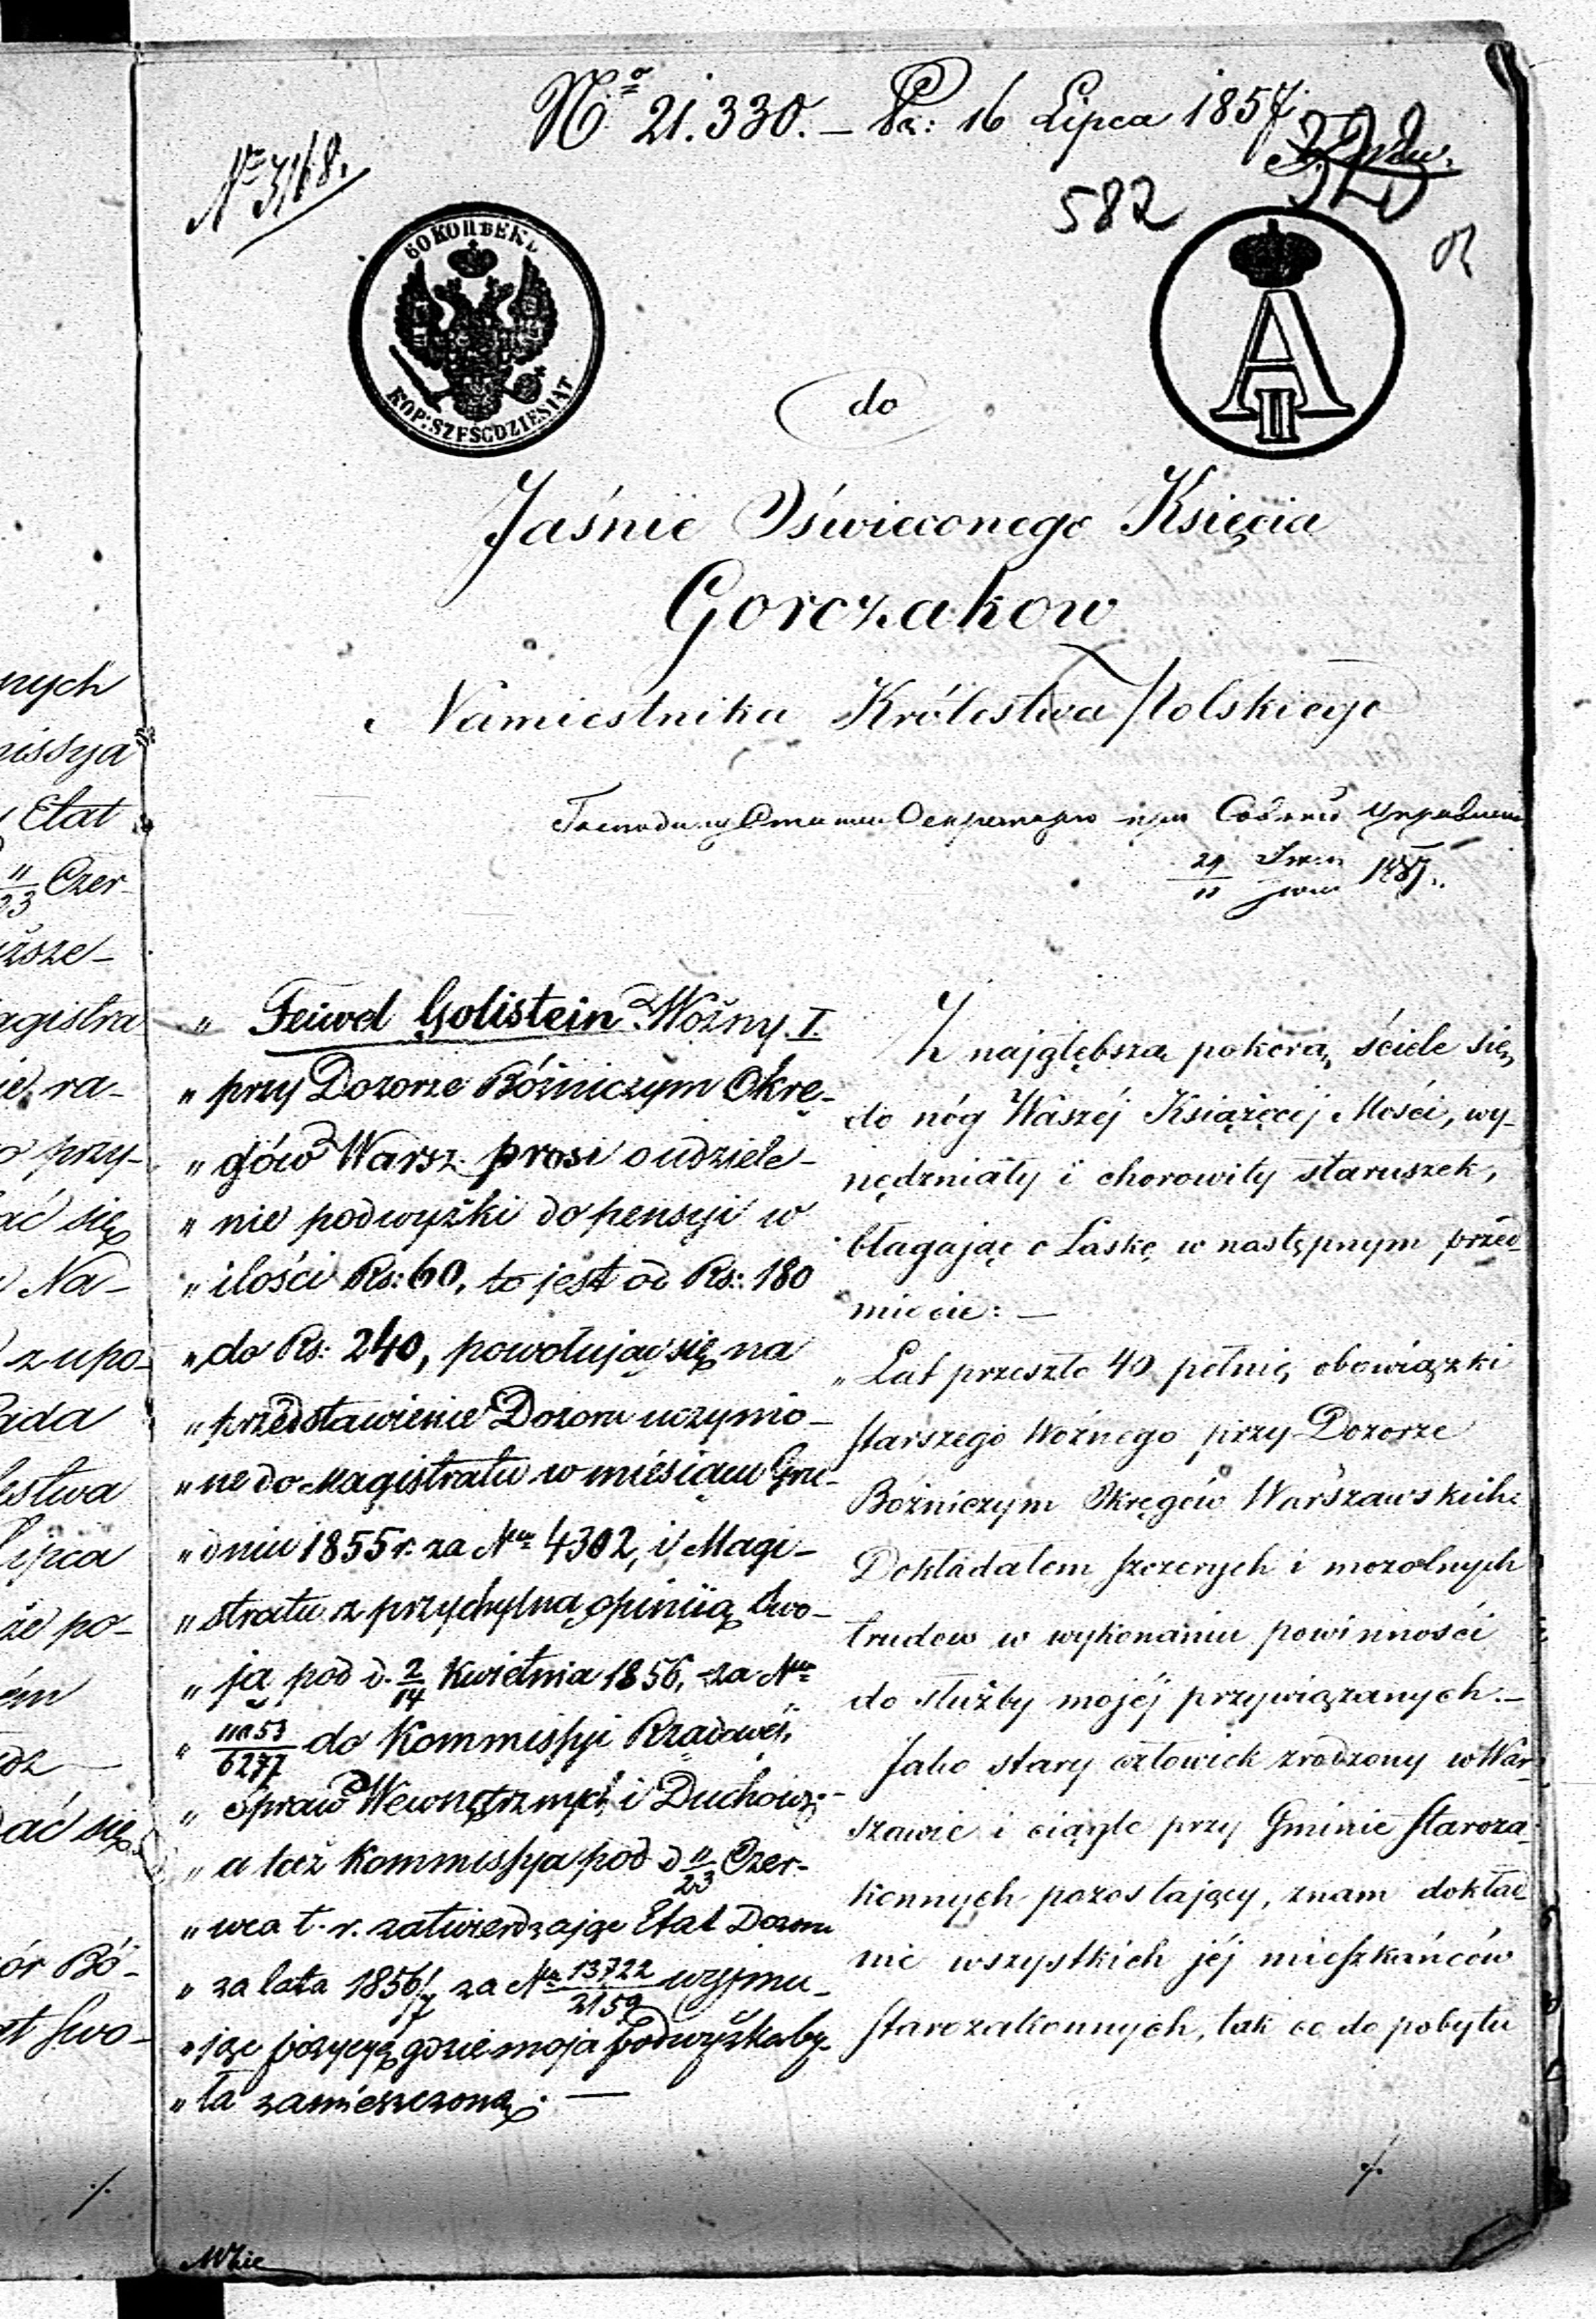 Nº 21.330. – Pr: 16 Lipca 1857
Nº 3168.
582
60 KOПѢЕКЪ
KOP: SZEŚĆDZIESIĄT
A II
do
Jaśnie Oświeconego Księcia
Gorczakow
Namiestnika Królestwa Polskiego
1857
nych
missya
Etat
11/23 Czer-
agistra
ra-
przy-
ać się
Na-
z upo-
ada
estwa
Lipca
że po-
ać się
ór Bó-
" Feiwel Golistein Woźny I.
" przy Dozorze Bóżniczym Okrę-
" gów Warsz. prosi o udziele-
" nie podwyżki do pensyi w
" ilości Rs: 60, to jest od Rs: 180
" do Rs: 240, powołując się na
" przedstawienie Dozoru uczynio-
" ne do Magistratu w miesiącu Gru-
" dniu 1855 r. za Nr 4302, i Magi-
" stratu z przychylną opinią swo-
" ją pod d. 2/14 Kwietnia 1856, za Nr
" 11053/6277 do Kommissyi Rządowéj
" Spraw Wewnętrznych i Duchown:
" a taż Kommissya pod d 11/23 Czer-
" wca t. r. zatwierdzając Etat Dozoru
" za lata 1856/7 za Nr 13722/2159 wyjmu-
" jąc pozycyę gdzie moja podwyżka by-
" ła zamieszczoną. —
Z najgłębszą pokorą ściele się
do nóg Waszéj Książęcéj Mości, wy-
nędzniały i chorowity staruszek,
błagając o Łaskę w następnym przed
miocie: —
" Lat przeszło 40 pełnię obowiązki
starszego Woźnego przy Dozorze
Bożniczym Okręgów Warszawskich
Dokładałem szczerych i mozolnych
trudow w wykonaniu powinności
do służby mojéj przywiązanych. –
Jako stary człowiek zrodzony w War-
szawie i ciągle przy Gminie Staroza-
konnych pozostający, znam dokład
nie wszystkich jéj mieszkańców
starozakonnych, tak co do pobytu